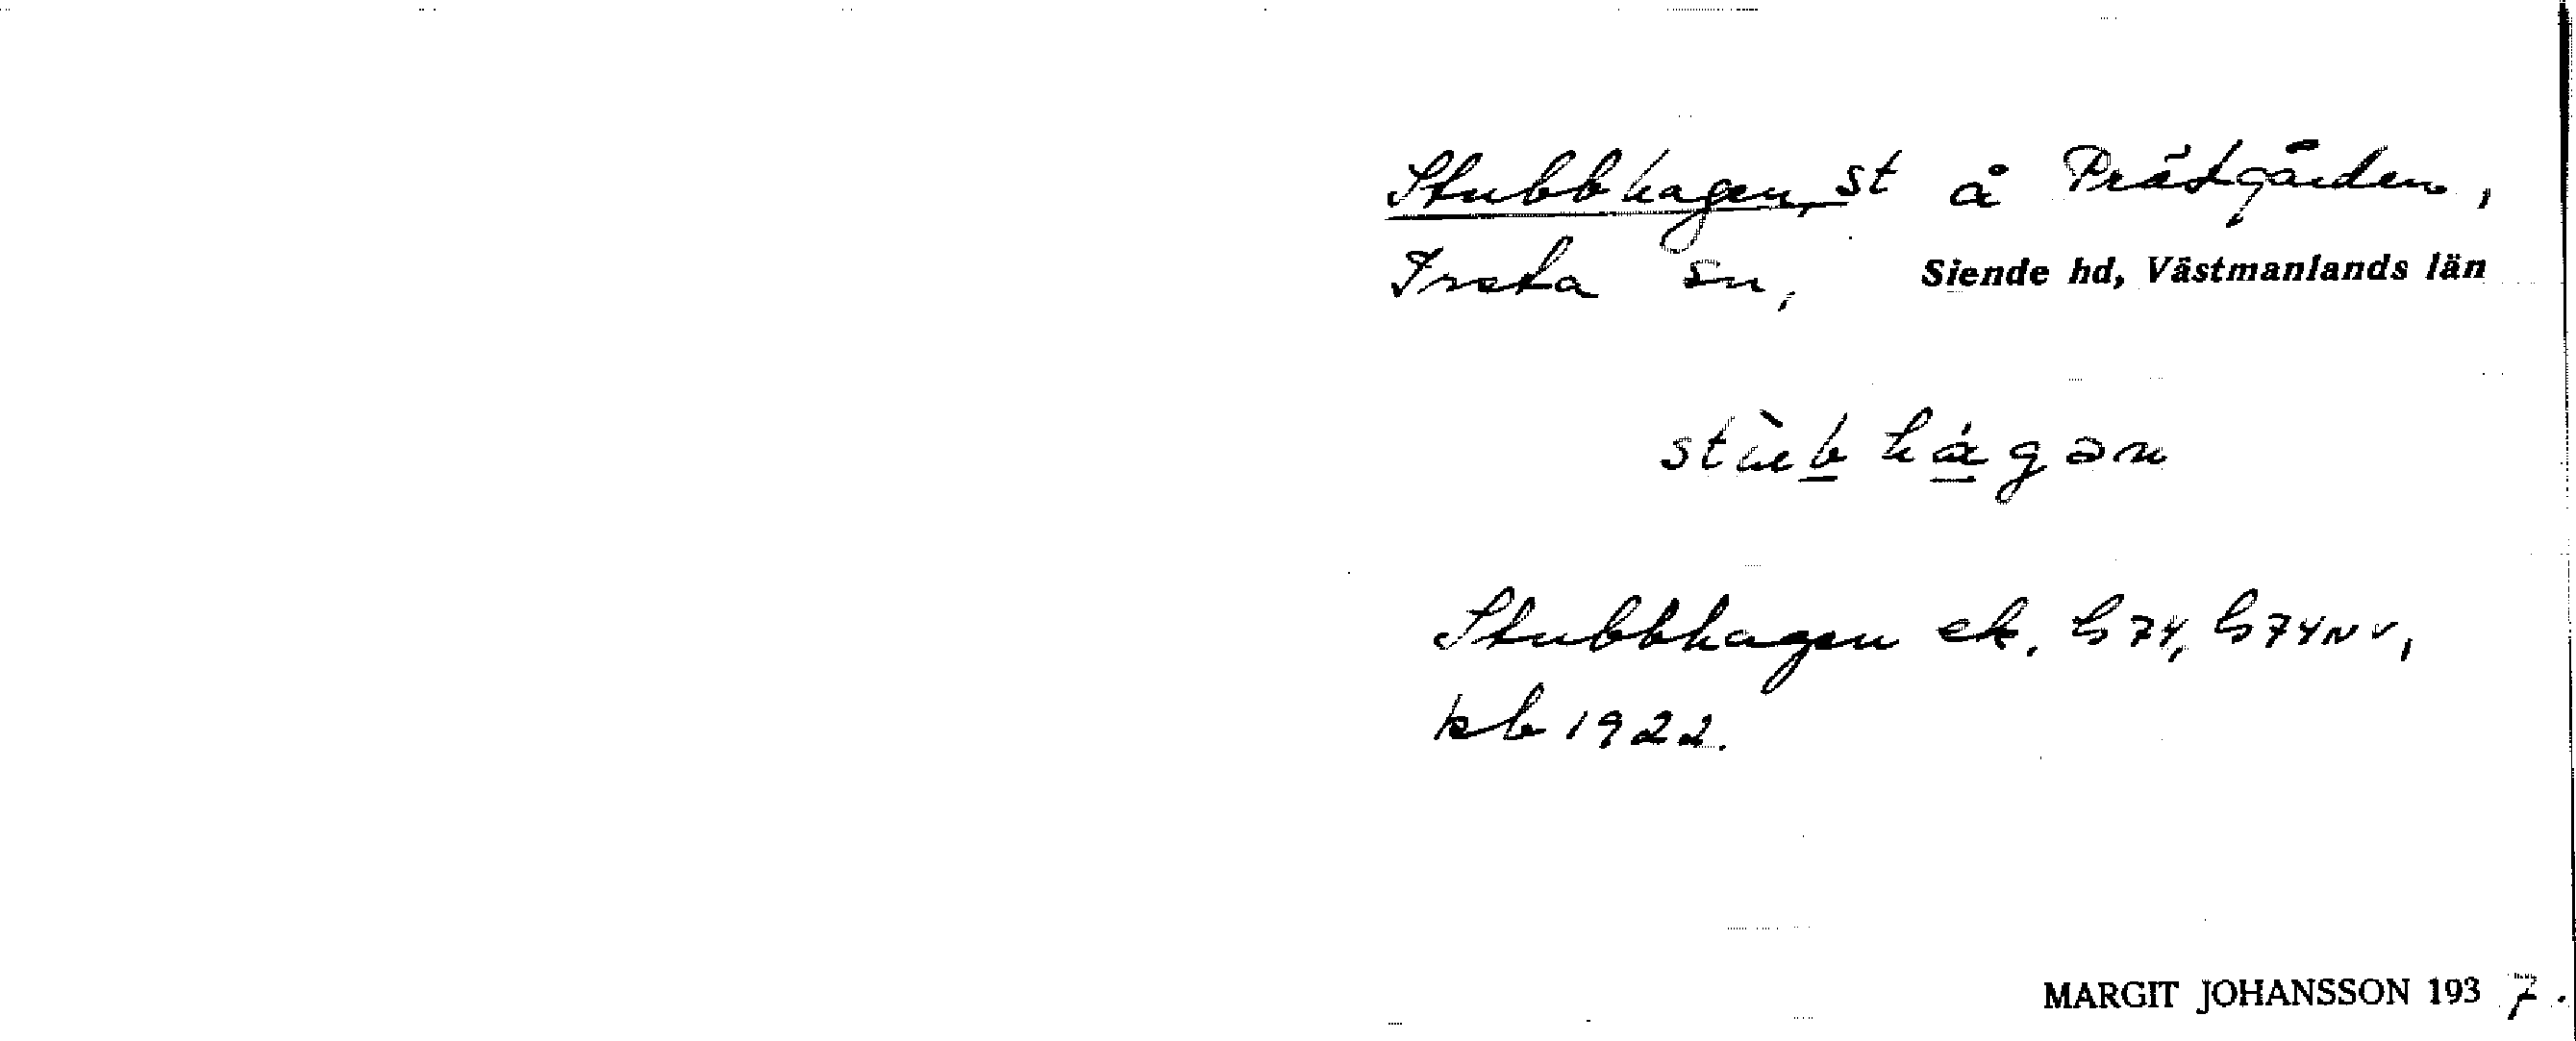 Stubbhagen, st å Prästgården,
Irsta sn, Siende hd, Västmanlands län
stùb hágən
Stubbhagen ek. G 74, G 74 NV,
kb 1922.
MARGIT JOHANSSON 1937.